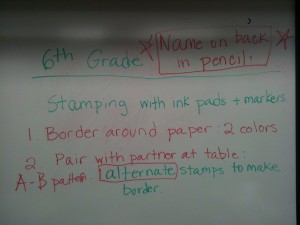 Name on back
6th Grade in pencil.
Stamping with ink pads + markers
1 Border around paper: 2 colors
2 Pair with partner at table:
A-B pattern. alternate stamps to make
border.